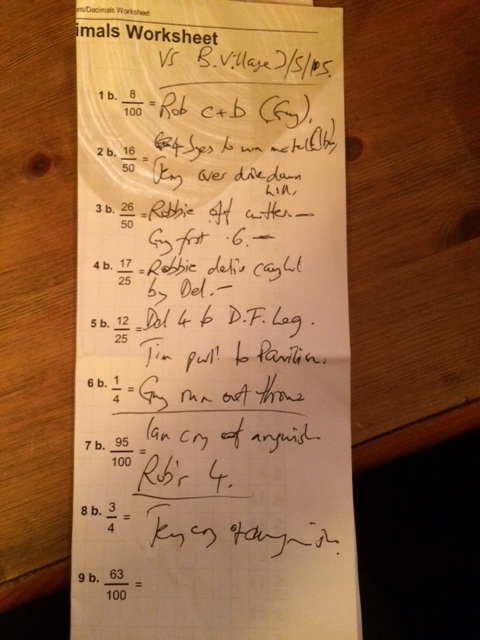 rs/Decimals Worksheet
imals Worksheet
Vs B. Village
1 b. 8/100 = Rob c+b (Guy).
2 b. 16/50 = 4 byes to win match
over drive down
hill.
3 b. 26/50 = Robbie off cutter —
Guy first 6. —
4 b. 17/25 = Robbie caught
by Del. —
5 b. 12/25 = Del 4 to D.F. Leg.
Tim pull to Pavilion.
6 b. 1/4 = Guy run out throw
Ian cry of anguish
7 b. 95/100 =
Rob's 4.
8 b. 3/4 = cry of anguish.
9 b. 63/100 =